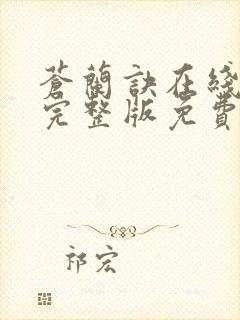 蒼蘭訣在綫
完整版免費
祁宏